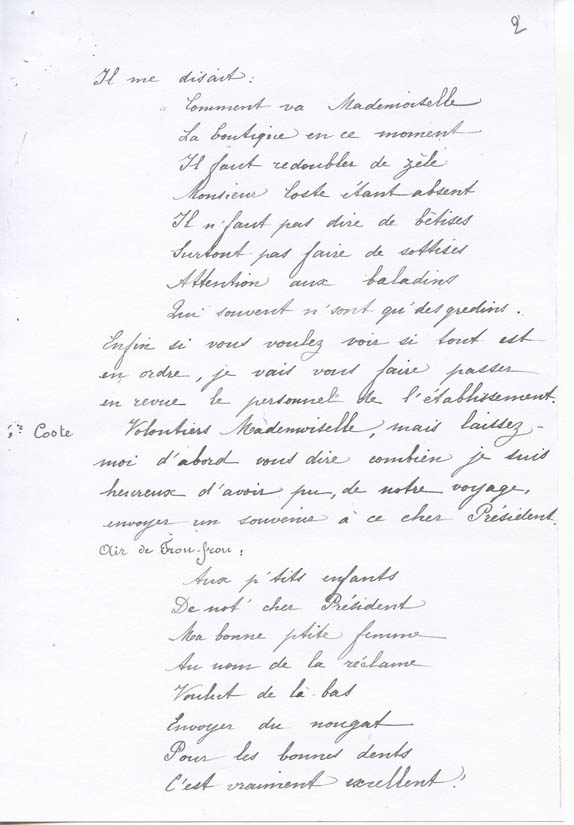 2
Il me disait:
Comment va Mademoiselle
La boutique en ce moment
Il faut redoubler de zèle
Monsieur Coste étant absent
Il n'faut pas dire de bêtises
Surtout pas faire de sottises
Attention aux baladins
Qui souvent n'sont qu'des gredins.
Enfin si vous voulez voir si tout est
en ordre, je vais vous faire passer
en revue le personnel de l'établissement.
Coste Volontiers Mademoiselle, mais laissez-
moi d'abord vous dire combien je suis
heureux d'avoir pu, de notre voyage,
envoyer un souvenir à ce cher Président
Air de Frou-frou:
Aux p'tits enfants
De not' cher Président
Ma bonne ptite femme
Au nom de la réclame
Voulut de là-bas
Envoyer du nougat
Pour les bonnes dents
C'est vraiment excellent!